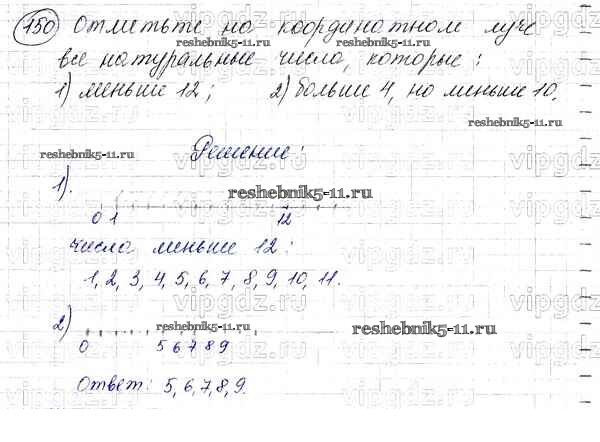 150 Отметьте на координатном луче
все натуральные числа, которые:
1) меньше 12; 2) больше 4, но меньше 10.
Решение:
1).
0 1 12
числа меньше 12:
1, 2, 3, 4, 5, 6, 7, 8, 9, 10, 11.
2)
0 5 6 7 8 9
Ответ: 5, 6, 7, 8, 9.
reshebnik5-11.ru
reshebnik5-11.ru
reshebnik5-11.ru
reshebnik5-11.ru
reshebnik5-11.ru
reshebnik5-11.ru
vipgdz.ru
vipgdz.ru
vipgdz.ru